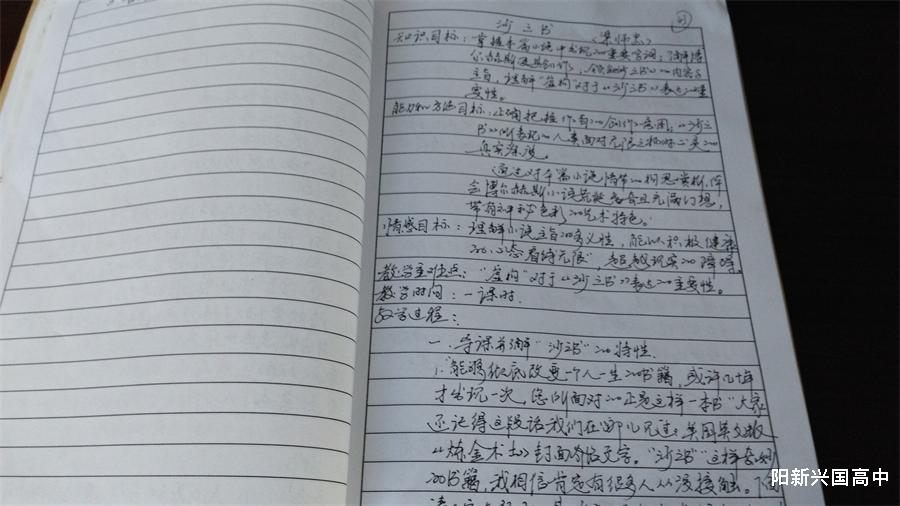 沙之书
知识目标：掌握本篇小说中出现的重要字词；了解博
尔赫斯及其创作，领会《沙之书》的内容与
主旨，理解"虚构"对于《沙之书》表达的重
要性。
能力和方法目标：正确把握作者的创作意图，《沙之
书》所表现的人类面对无限之物时心灵的
真实深渡。
通过对本篇小说情节的构思赏析，体
会博尔赫斯小说荒诞且充满幻想，
带有神秘色彩的艺术特色。
情感目标：理解小说主旨的多义性，能以积极健康
的心态看待"无限"，超越现实的障碍。
教学重难点："虚构"对于《沙之书》表达的重要性。
教学时间：一课时。
教学过程：
一．导课并讲解"沙之书"的特性．
1."能够彻底改变一个人一生的书籍，或许几十年
才出现一次，您所面对的正是这样一本书"大家
还记得这段话我们在哪儿见过：美国英文版
《炼金术士》封面介绍文字。"沙之书"这样奇妙
的书籍，我相信肯定有很多人从没接触。下面
阳新兴国高中